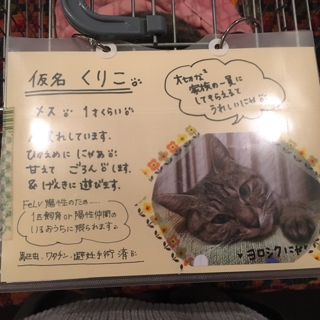 仮名 くりこ
メス 1才くらい
れしています。
ひかえめに にゃあ
甘えて ごろん します。
&げんきに 遊びます。
FeLV陽性のため…
1匹飼育or陽性仲間の
いるおうちに限られます。
ワクチン・避妊手術 済
大切な
家族の一員に
してもらえると
うれしいにゃ
ヨロシクにゃ